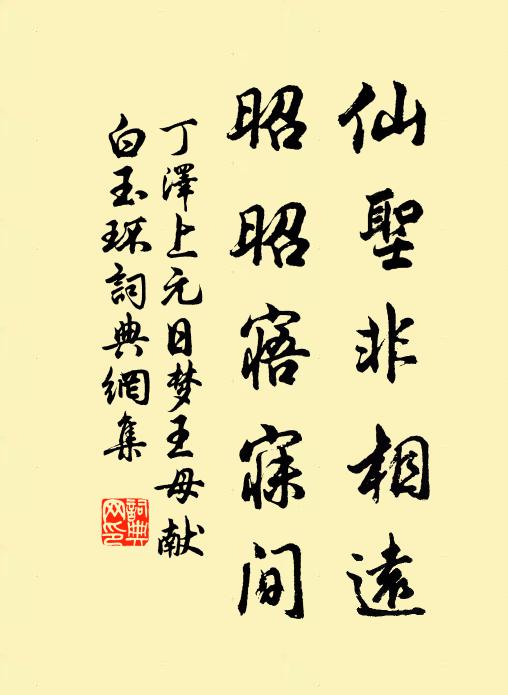 仙聖非相遠
昭昭寤寐间
丁澤上元日梦王母献
白玉环詞典網集
詞典
网印